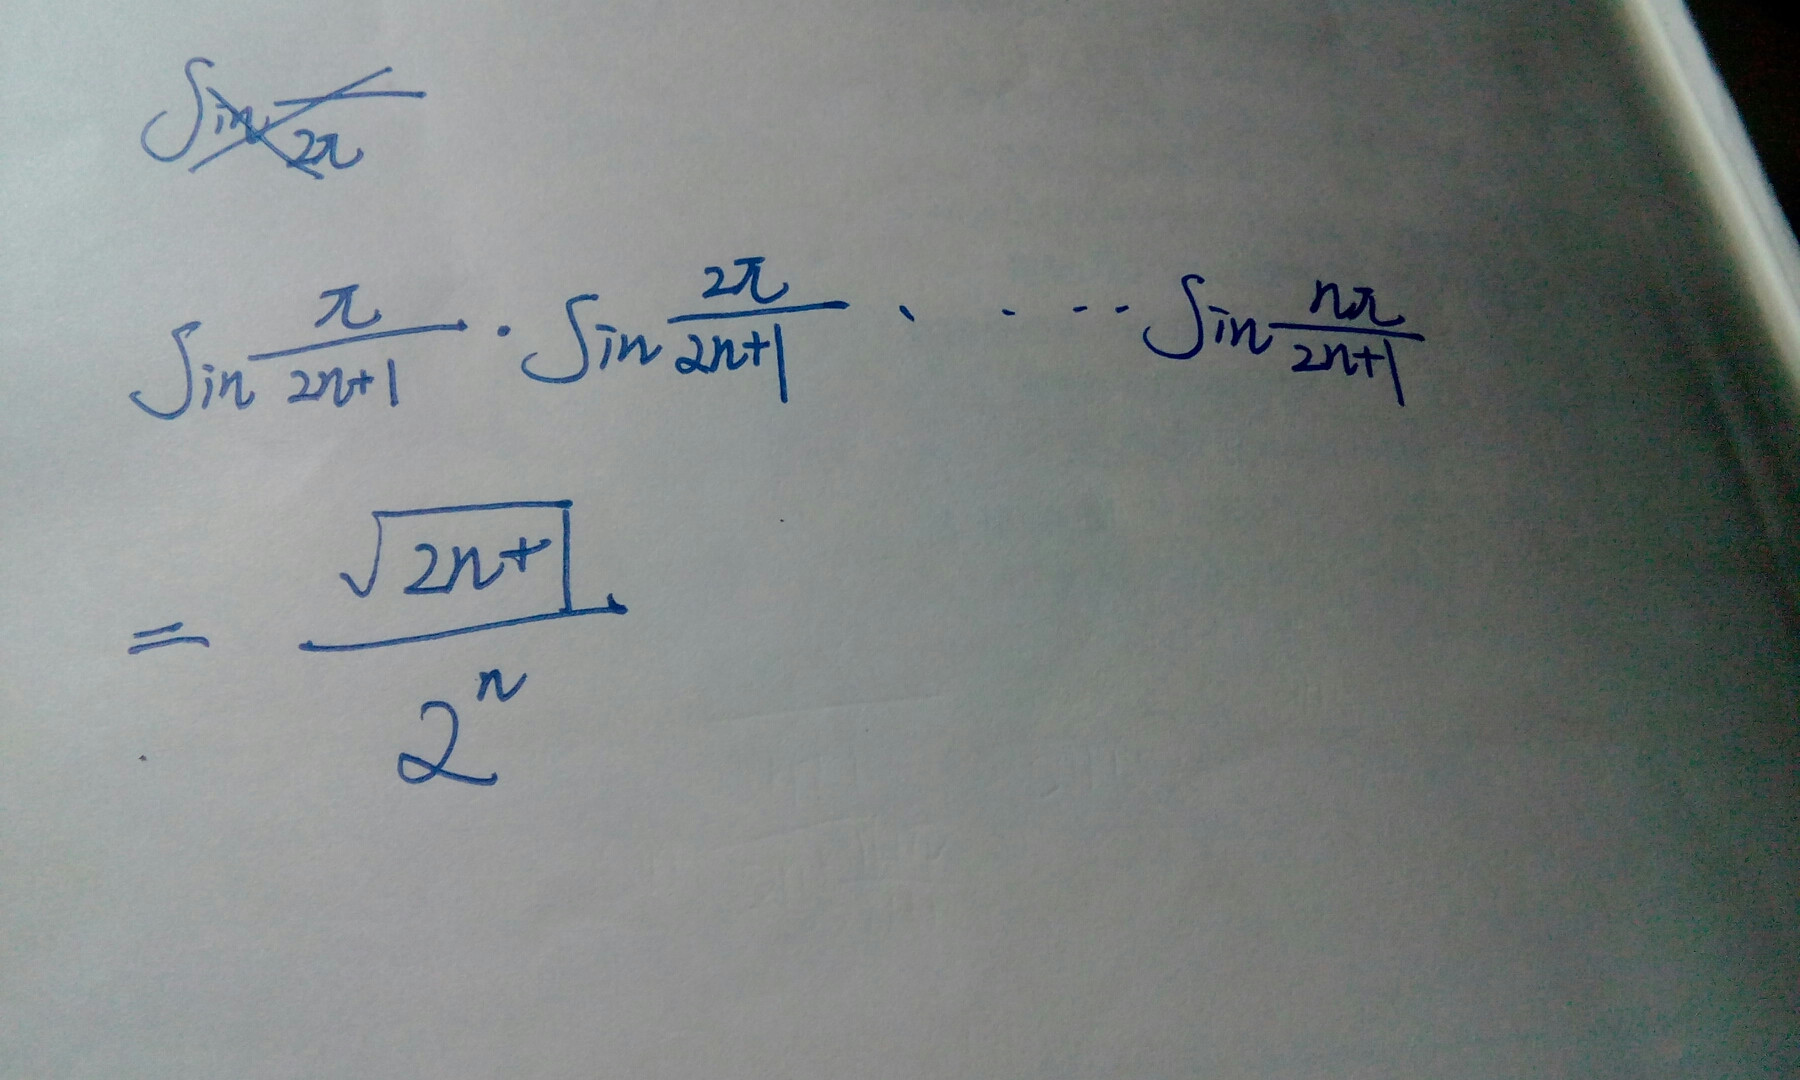 sin π/(2n+1) · sin 2π/(2n+1) · · · · · sin nπ/(2n+1)
= √(2n+1) / 2ⁿ